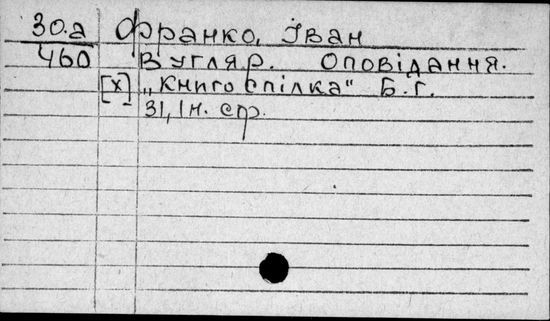 30.а Франко, Іван
460 Вугляр. Оповідання.
[х] „Книгоспілка" Б.Г.
31, 1 н. стр.